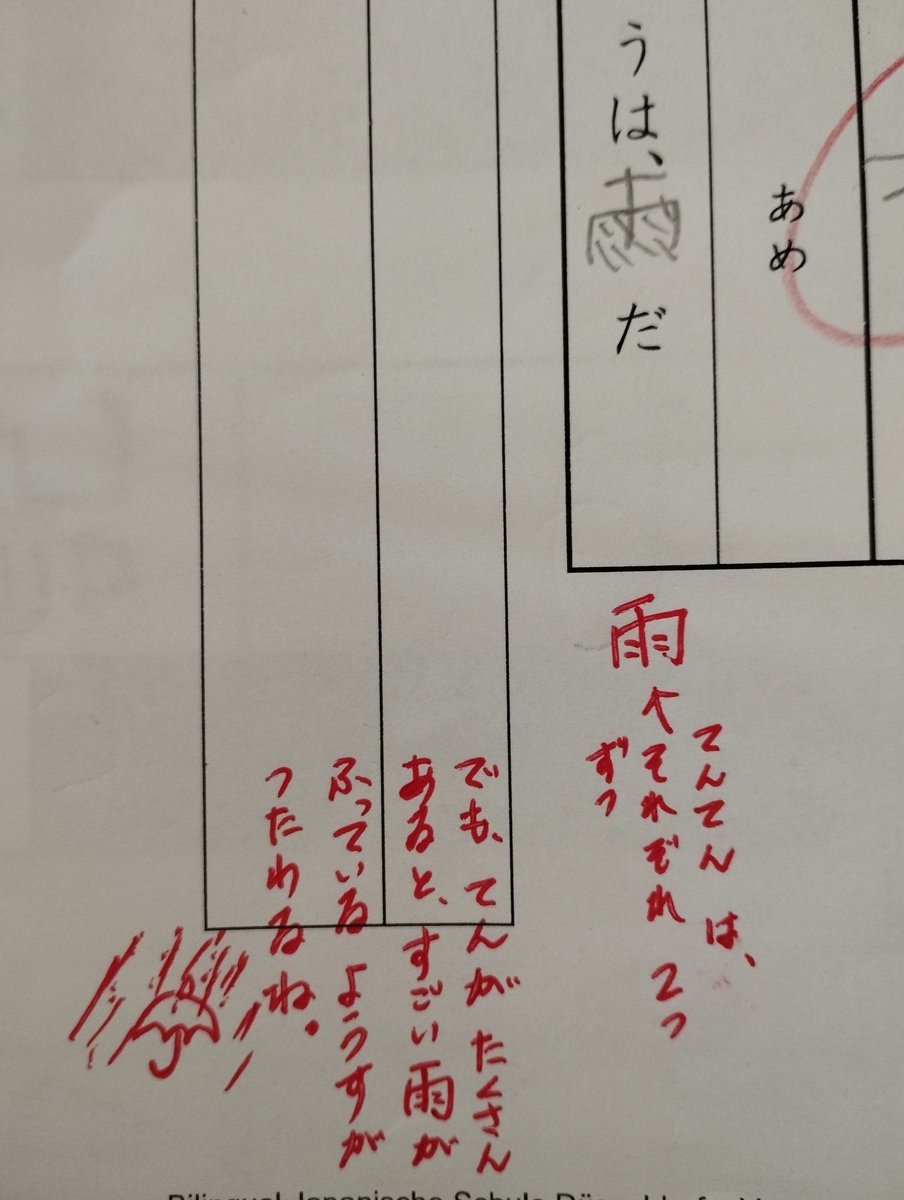 あめ
うは、雨だ
雨
てんてんは、
それぞれ2つ
ずつ
でも、てんがたくさん
あると、すごい雨が
ふっているようすが
つたわるね。
Bilingual Japanische Schule